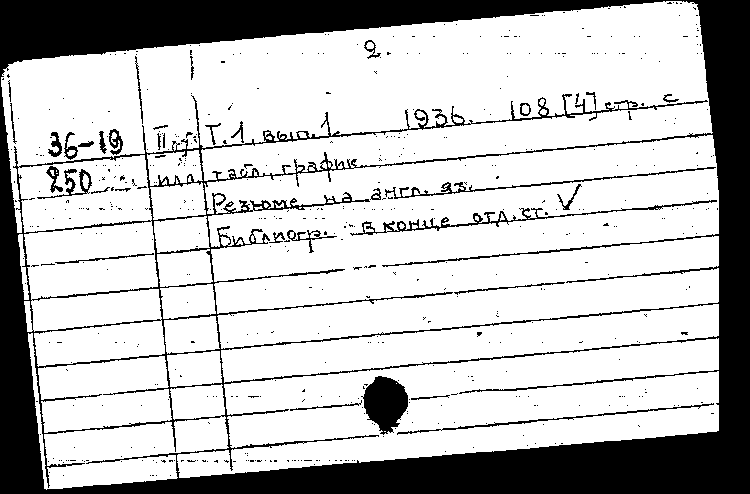 2.
36-19 II об. Т.1, вып.1. 1936. 108, [4] стр., с
250 илл., табл., график.
Резюме на англ. яз.
Библиогр. в конце отд. ст. ✓